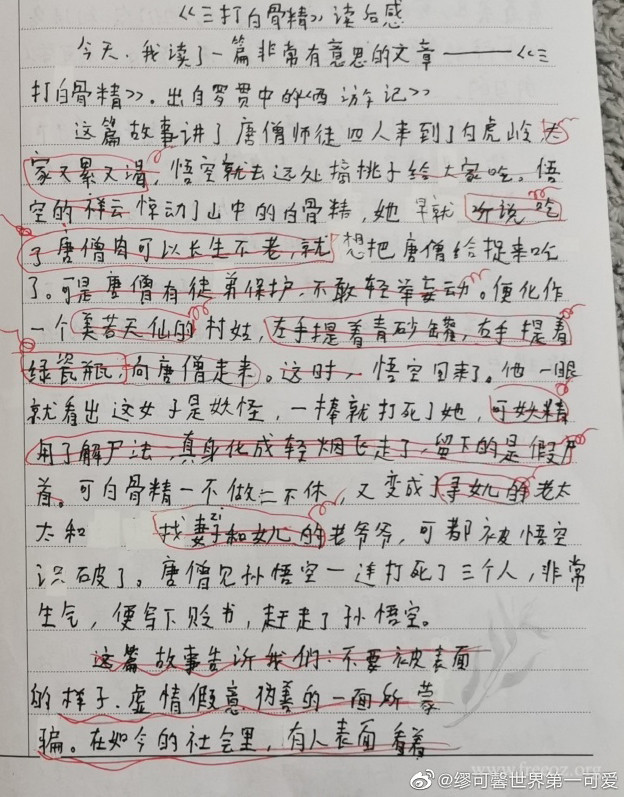 《三打白骨精》读后感
今天.我读了一篇非常有意思的文章——《三
打白骨精》.出自罗贯中的《西游记》
这篇故事讲了唐僧师徒四人来到了白虎岭大
家又累又渴,悟空就去远处摘桃子给大家吃。悟
空的祥云惊动了山中的白骨精,她早就听说吃
了唐僧肉可以长生不老,就想把唐僧给捉来吃
了。可是唐僧有徒弟保护,不敢轻举妄动。便化作
一个美若天仙的村姑,左手提着青砂罐,右手提着
绿瓷瓶,向唐僧走来。这时,悟空回来了。他一眼
就看出这女子是妖怪,一棒就打死了她,可妖精
用了解尸法,真身化成轻烟飞走了,留下的是假尸
首。可白骨精一不做二不休,又变成了寻女儿的老太
太和 找妻子和女儿的老爷爷,可都被悟空
zi
识破了。唐僧见孙悟空一连打死了三个人,非常
生气,便写下贬书,赶走了孙悟空。
这篇故事告诉我们:不要被表面
的样子.虚情假意伪善的一面所蒙
骗。在如今的社会里,有人表面看着
www.freeoz.org
@缪可馨世界第一可爱